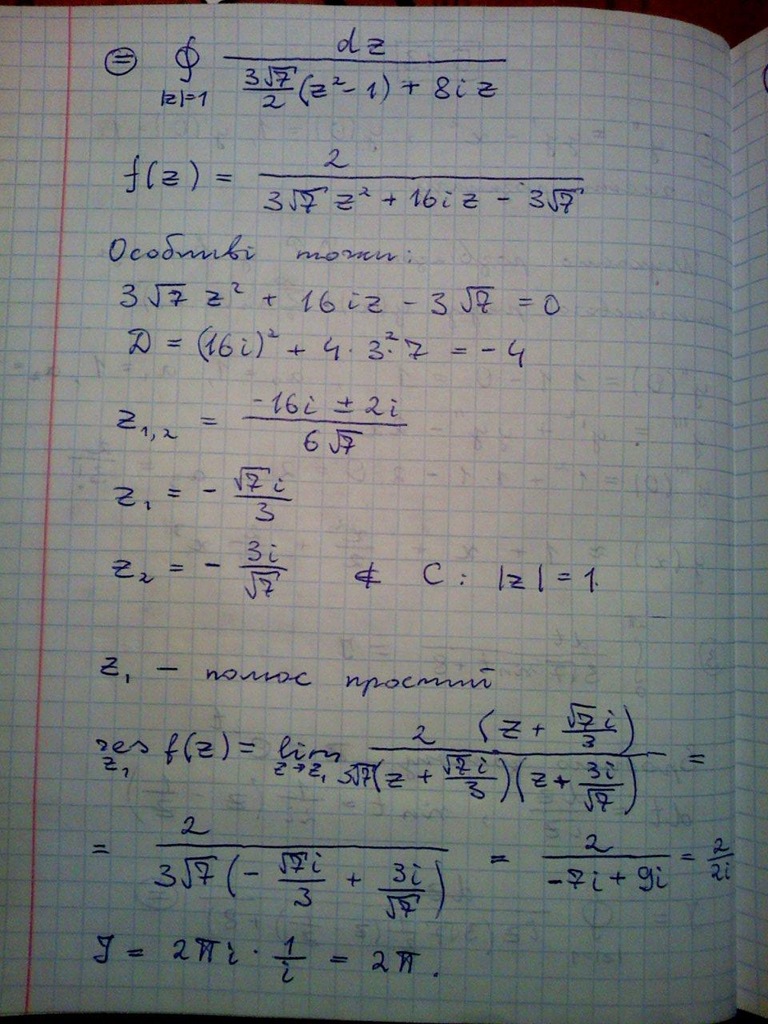 ⊜ ∮_{|z|=1} dz / ( (3√7/2)(z² - 1) + 8iz )
f(z) = 2 / ( 3√7 z² + 16iz - 3√7 )
Особливі точки:
3√7 z² + 16iz - 3√7 = 0
D = (16i)² + 4·3²·7 = -4
z₁,₂ = (-16i ± 2i) / (6√7)
z₁ = - √7i / 3
z₂ = - 3i / √7 ∉ C: |z| = 1.
z₁ – полюс простий
res_{z₁} f(z) = lim_{z→z₁} 2 (z + √7i/3) / ( 3√7(z + √7i/3)(z + 3i/√7) ) =
= 2 / ( 3√7(- √7i/3 + 3i/√7) ) = 2 / (-7i + 9i) = 2/2i
J = 2πi · 1/i = 2π.